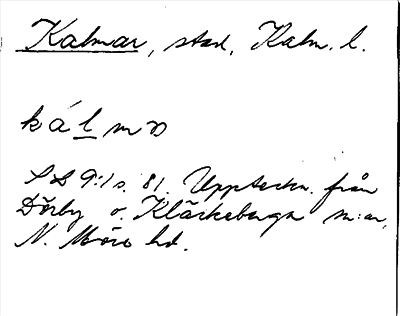 Kalmar, stad, Kalm. l.
kálmɷ
SL 9:1 s. 81. Uppteckn. från
Dörby o. Kläckeberga sn:ar,
N. Möre hd.